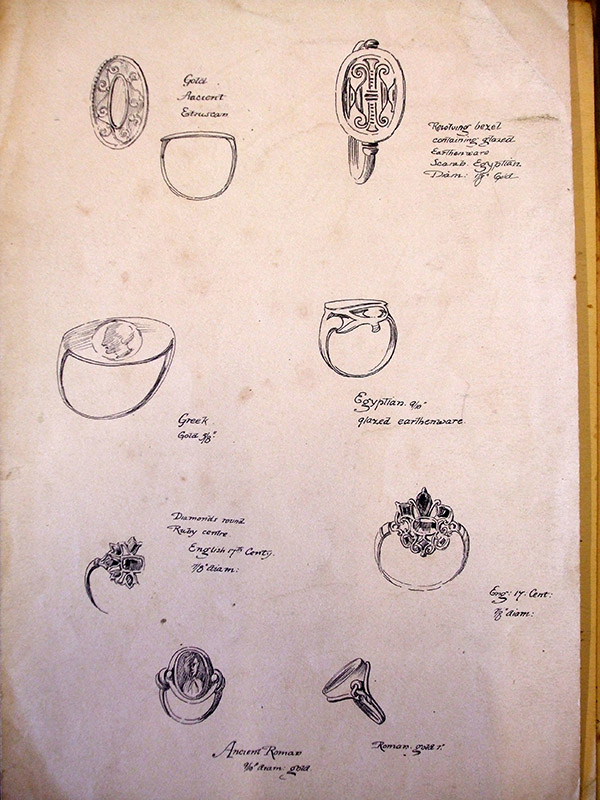 Gold
Ancient
Etruscan
Revolving bezel
containing glazed
Earthenware
Scarab. Egyptian
Diam: Gold
Egyptian. 9/10"
glazed earthenware.
Greek
Gold
Diamonds round
Ruby centre
English 17th Centy.
7/8" diam:
Eng: 17. Cent:
7/8" diam:
Ancient Roman
9/10" diam: gold.
Roman. gold 1"